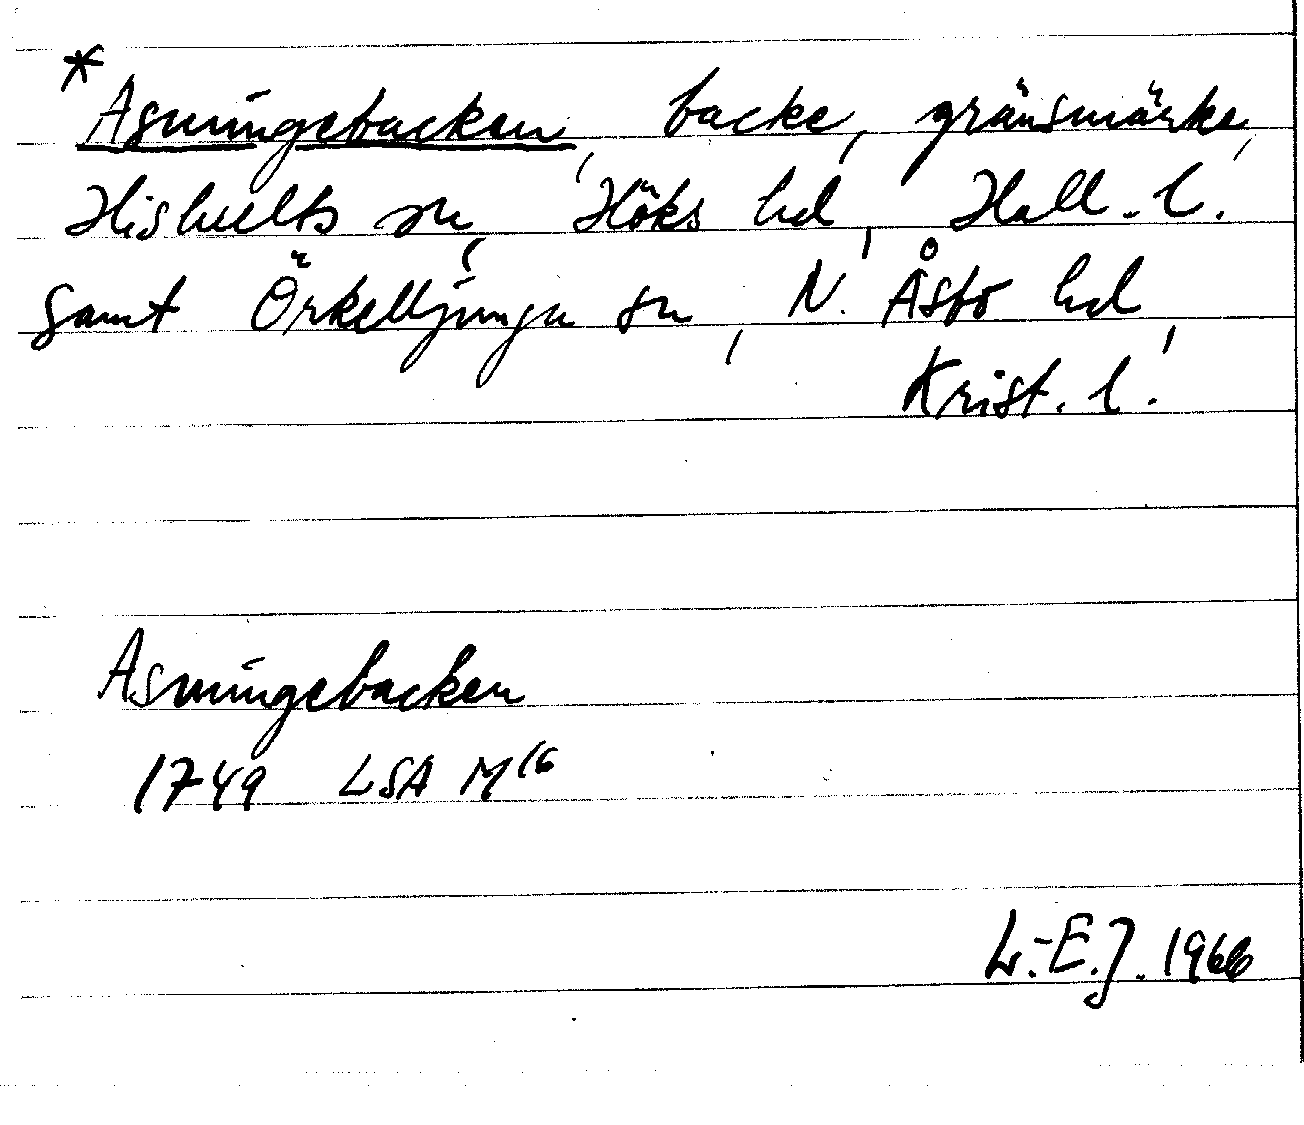 *Asmingebacken, backe, gränsmärke,
Hishults sn, Höks hd, Hall. l.
samt Örkelljunga sn, N. Åsbo hd,
Krist. l.
Asmingebacken
1749 LSA M16
L.-E.J. 1966